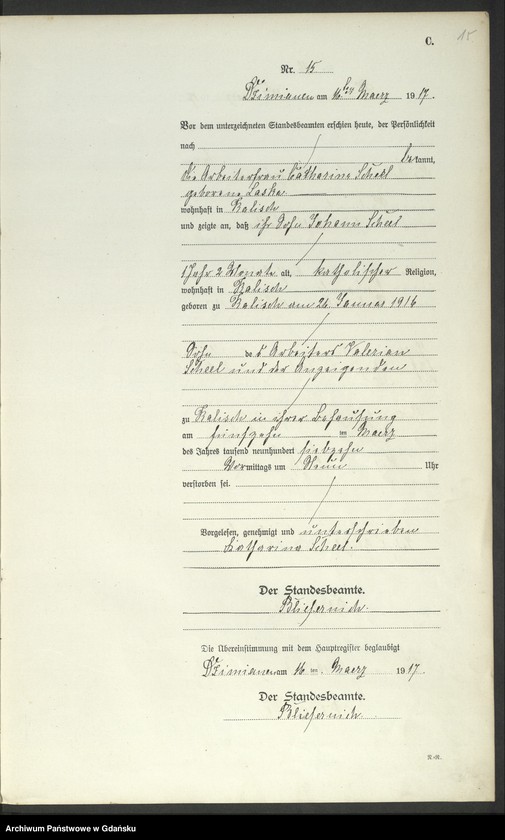 C. 15
Nr. 15
Dzimianen am 16ten Maerz 1917.
Vor dem unterzeichneten Standesbeamten erschien heute, der Persönlichkeit
nach
bekannt,
die Arbeiterfrau Catharina Scheel
geborene Laska
wohnhaft in Kalisch
und zeigte an, daß ihr Sohn Johann Scheel
1 Jahr 2 Monate alt, katholischer Religion,
wohnhaft in Kalisch
geboren zu Kalisch am 26. Januar 1916
Sohn des Arbeiters Valerian
Scheel und der Anzeigenden
zu Kalisch in ihrer Behausung
am fünfzehn ten Maerz
des Jahres tausend neunhundert siebzehn
Vormittags um Neun Uhr
verstorben sei.
Vorgelesen, genehmigt und unterschrieben
Katharina Scheel.
Der Standesbeamte.
Bliefernich.
Die Übereinstimmung mit dem Hauptregister beglaubigt
Dzimianen am 16 ten Maerz 1917.
Der Standesbeamte.
Bliefernich
R.-R.
Archiwum Państwowe w Gdańsku